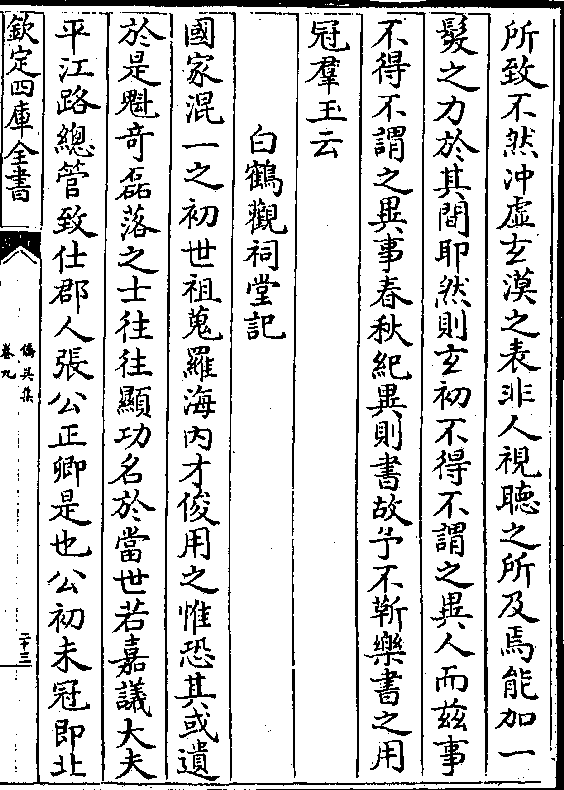 所致不然冲虚玄漠之表非人視聽之所及焉能加一
髮之力於其間耶然則玄初不得不謂之異人而兹事
不得不謂之異事春秋紀異則書故予不靳樂書之用
冠羣玉云
白鶴觀祠堂記
國家混一之初世祖蒐羅海内才俊用之惟恐其或遺
於是魁奇磊落之士往往顯功名於當世若嘉議大夫
平江路總管致仕郡人張公正卿是也公初未冠即北
欽定四庫全書
僑吳集
卷九
二十三